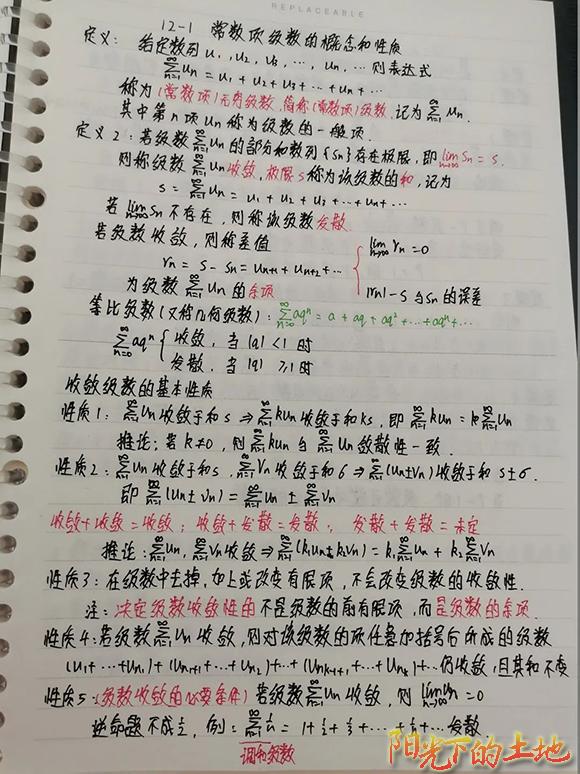 REPLACEABLE
12-1 常数项级数的概念和性质
定义: 给定数列 u₁, u₂, u₃, ⋯, uₙ, ⋯ 则表达式
∑_{n=1}^{∞} uₙ = u₁ + u₂ + u₃ + ⋯ + uₙ + ⋯
称为(常数项)无穷级数, 简称(常数项)级数, 记为 ∑_{n=1}^{∞} uₙ.
其中第 n 项 uₙ 称为级数的一般项.
定义2: 若级数 ∑_{n=1}^{∞} uₙ 的部分和数列{Sₙ}存在极限, 即 lim_{n→∞} Sₙ = S.
则称级数 ∑_{n=1}^{∞} uₙ 收敛, 极限 s 称为该级数的和, 记为
s = ∑_{n=1}^{∞} uₙ = u₁ + u₂ + u₃ + ⋯ + uₙ + ⋯
若 lim_{n→∞} Sₙ 不存在, 则称该级数发散.
若级数收敛, 则称差值
rₙ = s - sₙ = uₙ₊₁ + uₙ₊₂ + ⋯
为级数 ∑_{n=1}^{∞} uₙ 的余项
{ lim_{n→∞} rₙ = 0
|rₙ| - S 与 Sₙ 的误差
等比级数(又称几何级数): ∑_{n=0}^{∞} aqⁿ = a + aq + aq² + ⋯ + aqⁿ + ⋯
∑_{n=0}^{∞} aqⁿ { 收敛, 当 |q| < 1 时
发散, 当 |q| ≥ 1 时
收敛级数的基本性质
性质1: ∑_{n=1}^{∞} uₙ 收敛于和 s ⇒ ∑_{n=1}^{∞} kuₙ 收敛于和 ks, 即 ∑_{n=1}^{∞} kuₙ = k∑_{n=1}^{∞} uₙ
推论: 若 k≠0, 则 ∑_{n=1}^{∞} kuₙ 与 ∑_{n=1}^{∞} uₙ 敛散性一致.
性质2: ∑_{n=1}^{∞} uₙ 收敛于和 s, ∑_{n=1}^{∞} vₙ 收敛于和 σ ⇒ ∑_{n=1}^{∞} (uₙ±vₙ) 收敛于和 s±σ.
即 ∑_{n=1}^{∞} (uₙ ± vₙ) = ∑_{n=1}^{∞} uₙ ± ∑_{n=1}^{∞} vₙ
收敛+收敛=收敛; 收敛+发散=发散; 发散+发散=未定
推论: ∑_{n=1}^{∞} uₙ, ∑_{n=1}^{∞} vₙ 收敛 ⇒ ∑_{n=1}^{∞} (k₁uₙ±k₂vₙ) = k₁∑_{n=1}^{∞} uₙ + k₂∑_{n=1}^{∞} vₙ
性质3: 在级数中去掉, 加上或改变有限项, 不会改变级数的收敛性.
注: 决定级数收敛性的不是级数的前有限项, 而是级数的余项.
性质4: 若级数 ∑_{n=1}^{∞} uₙ 收敛, 则对该级数的项任意加括号后所成的级数
(u₁+⋯+uₙ₁)+(uₙ₁₊₁+⋯+uₙ₂)+⋯+(uₙₖ₋₁₊₁+⋯+uₙₖ)+⋯ 仍收敛, 且其和不变
性质5: (级数收敛的必要条件) 若级数 ∑_{n=1}^{∞} uₙ 收敛, 则 lim_{n→∞} uₙ = 0
逆命题不成立, 例: ∑_{n=1}^{∞} 1/n = 1 + 1/2 + 1/3 + ⋯ + 1/n + ⋯ 发散.
调和级数
阳光下的土地